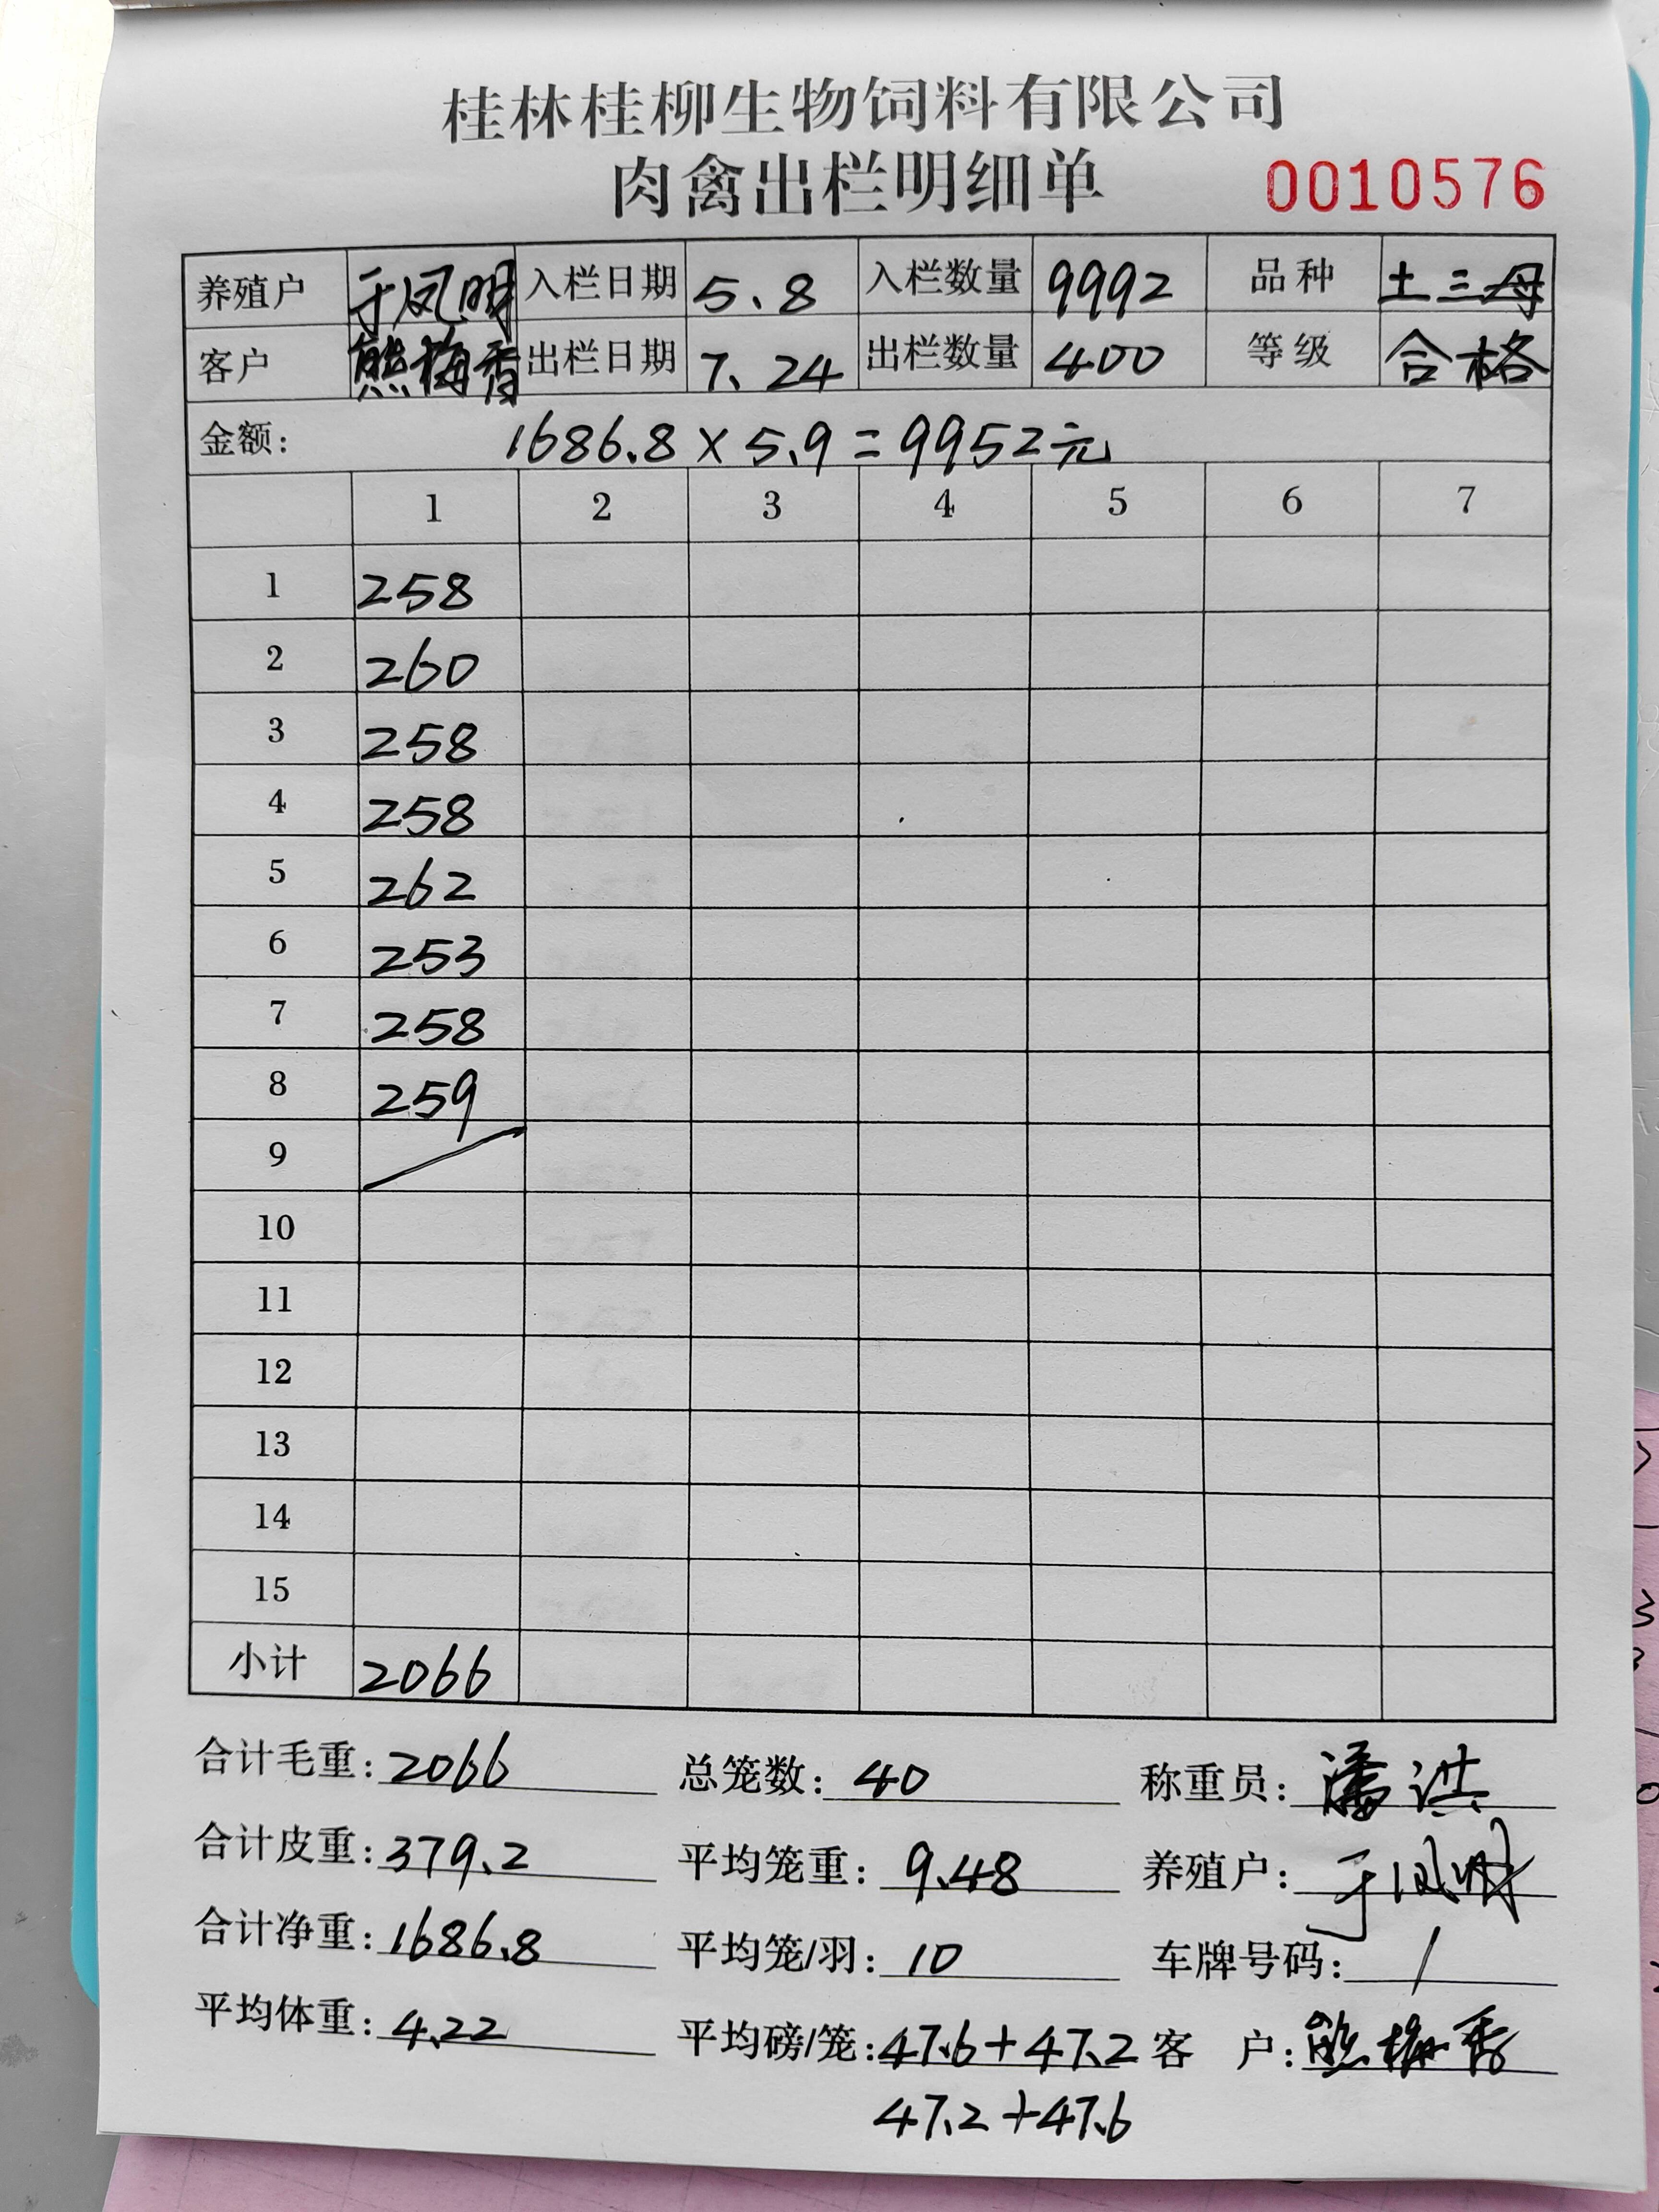 桂林桂柳生物饲料有限公司
肉禽出栏明细单 0010576
养殖户 于凤明 入栏日期 5.8 入栏数量 9992 品种 土三母
客户 熊梅香 出栏日期 7.24 出栏数量 400 等级 合格
金额: 1686.8×5.9=9952元
1 2 3 4 5 6 7
1 258
2 260
3 258
4 258
5 262
6 253
7 258
8 259
9
10
11
12
13
14
15
小计 2066
合计毛重: 2066 总笼数: 40 称重员: 潘洪
合计皮重: 379.2 平均笼重: 9.48 养殖户: 于凤明
合计净重: 1686.8 平均笼/羽: 10 车牌号码: /
平均体重: 4.22 平均磅/笼: 47.6+47.2 客 户: 熊梅香
47.2+47.6